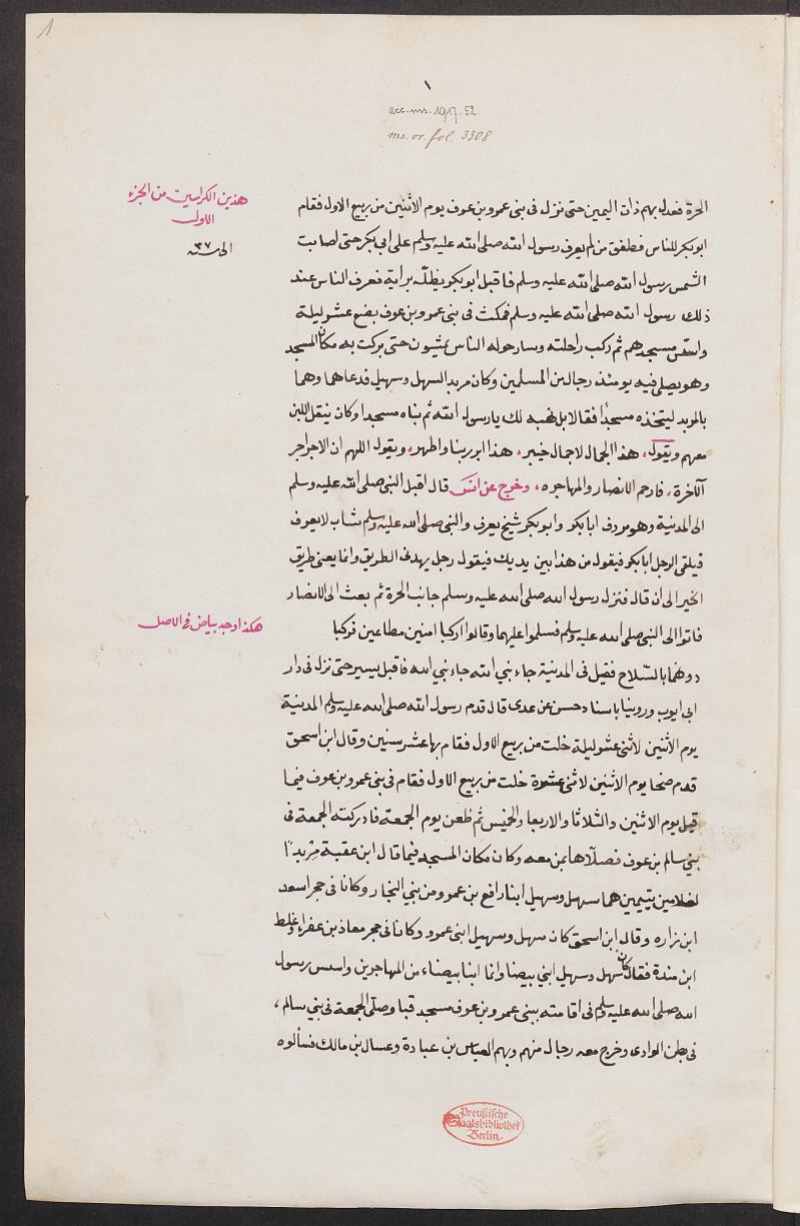 1
١
acc. ms. 1917. 52.
ms. or. fol. 3308
هذين الكراسين من الجزء
الاول
الى سنه ٣٧
الحرة فعدل بهم ذات اليمين حتى نزل فى بنى عمرو بن عوف يوم الاثنين من ربيع الاول فقام
ابو بكر للناس فطفق من لم يعرف رسول الله صلى الله عليه وسلم على ابى بكر حتى اصابت
الشمس رسول الله صلى الله عليه وسلم فاقبل ابو بكر يظلّه بردائه فعرف الناس عند
ذلك رسول الله صلى الله عليه وسلم فمكث فى بنى عمرو بن عوف بضع عشر ليلة
واسس مسجدهم ثم ركب راحلته وسار حوله الناس يمشون حتى بركت به مكان المسجد
وهو يصلى فيه يومئذ رجال من المسلمين وكان مربد السهل وسهيل فدعاهما وهما
بالمربد ليتخذه مسجدًا فقالا بل نهبه لك يا رسول الله ثم بناه مسجدا وكان ينقل اللبن
معهم ويقول، هذا الجمال لا جمال خيبر، هذا ابر ربنا واطهر، ويقول اللهم ان الاجر اجر
الآخرة، فارحم الانصار والمهاجره، وخرج عن انس قال اقبل النبى صلى الله عليه وسلم
الى المدينة وهو مردف ابا بكر وابو بكر شيخ يعرف والنبى صلى الله عليه وسلم شاب لا يعرف
فيلقى الرجل ابا بكر فيقول من هذا بين يديك فيقول رجل يهدى الطريق وانما يعنى طريق
الخير الى ان قال فنزل رسول الله صلى الله عليه وسلم جانب الحرة ثم بعث الى الانصار
فاتوا الى النبى صلى الله عليه وسلم فسلموا عليهما وقالوا اركبا امنين مطاعين فركبا
هكذا وجد بياض فى الاصل
دونهما بالسّلاح فقيل فى المدينة جاء نبي الله جاء نبي الله فاقبل يسير حتى نزل فى دار
ابى ايوب وروينا باسناد حسن عن عدى قال قدم رسول الله صلى الله عليه وسلم المدينة
يوم الاثنين لاثنى عشر ليلة خلت من ربيع الاول فقام بها عشر سنين وقال ابن اسحق
قدم ضحا يوم الاثنين لاثنى عشرة خلت من ربيع الاول فقام فى بنى عمرو بن عوف فيما
قيل يوم الاثنين والثلاثا والاربعا والخميس ثم ظعن يوم الجمعة فادركته الجمعة فى
بني سالم بن عوف فصلّاها بمن معه وكان مكان المسجد فيما قال ابن عقبة مربدًا
لغلامين يتيمين هما سهل وسهيل ابنا رافع بن عمرو من بني النجار وكانا فى حجر اسعد
ابن زراره وقال ابن اسحق كان سهل وسهيل ابنى عمرو وكانا فى حجر معاذ بن عفراء وغلط
ابن مندة فقال كان سهل وسهيل ابني بيضا وانما ابنا بيضاء من المهاجرين واسس رسول
الله صلى الله عليه وسلم فى اقامته ببنى عمرو بن عوف مسجد قبا وصلّى الجمعة فى بني سالم،
فى بطن الوادى وخرج معه رجال منهم وبهم العباس بن عبادة وعسال بن مالك فسألوه
Preußische
Staatsbibliothek
Berlin